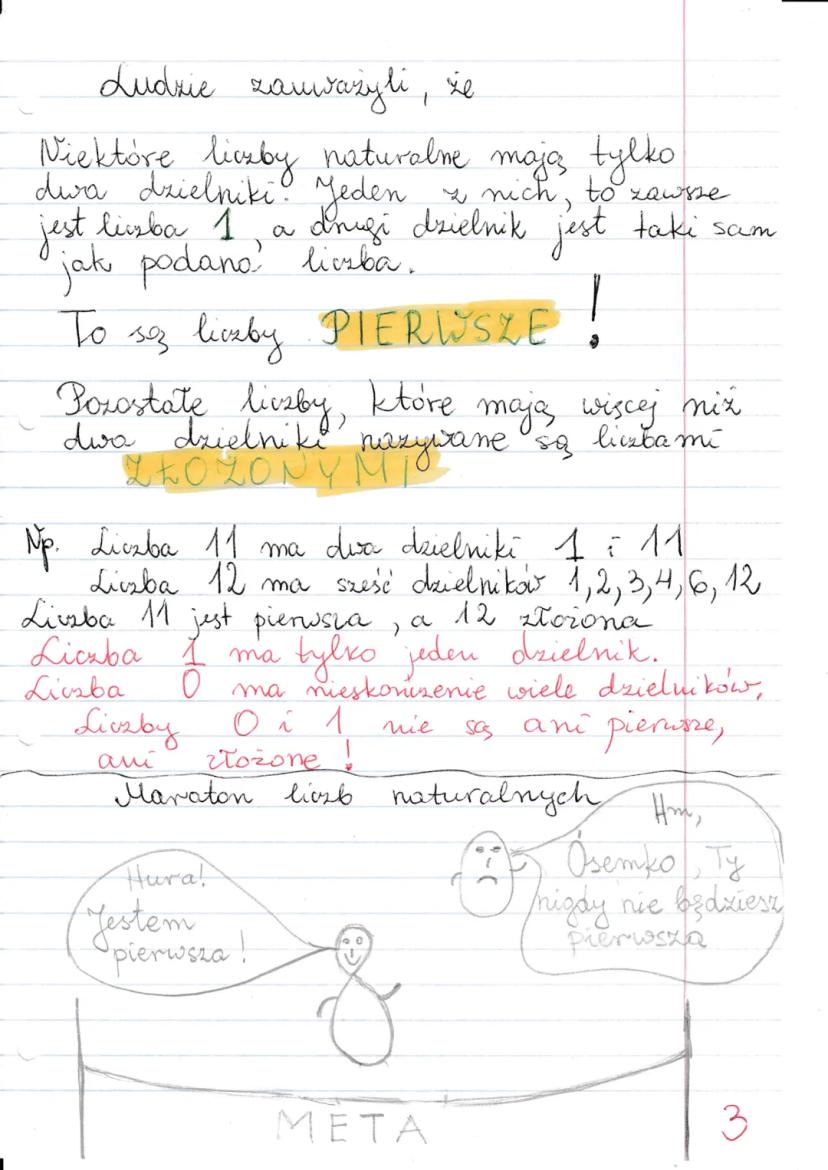 Ludzie zauważyli, że
Niektóre liczby naturalne mają tylko
dwa dzielniki. Jeden z nich, to zawsze
jest liczba 1, a drugi dzielnik jest taki sam
jak podana liczba.
To są liczby PIERWSZE!
Pozostałe liczby, które mają więcej niż
dwa dzielniki nazywane są liczbami
ZŁOŻONYMI
Np. Liczba 11 ma dwa dzielniki 1 i 11
Liczba 12 ma sześć dzielników 1,2,3,4,6,12
Liczba 11 jest pierwsza, a 12 złożona
Liczba 1 ma tylko jeden dzielnik.
Liczba 0 ma nieskończenie wiele dzielników.
Liczby 0 i 1 nie są ani pierwsze,
ani złożone!
Maraton liczb naturalnych
Hura!
Jestem
pierwsza!
Hm,
Ósemko, Ty
nigdy nie będziesz
pierwsza
META
3